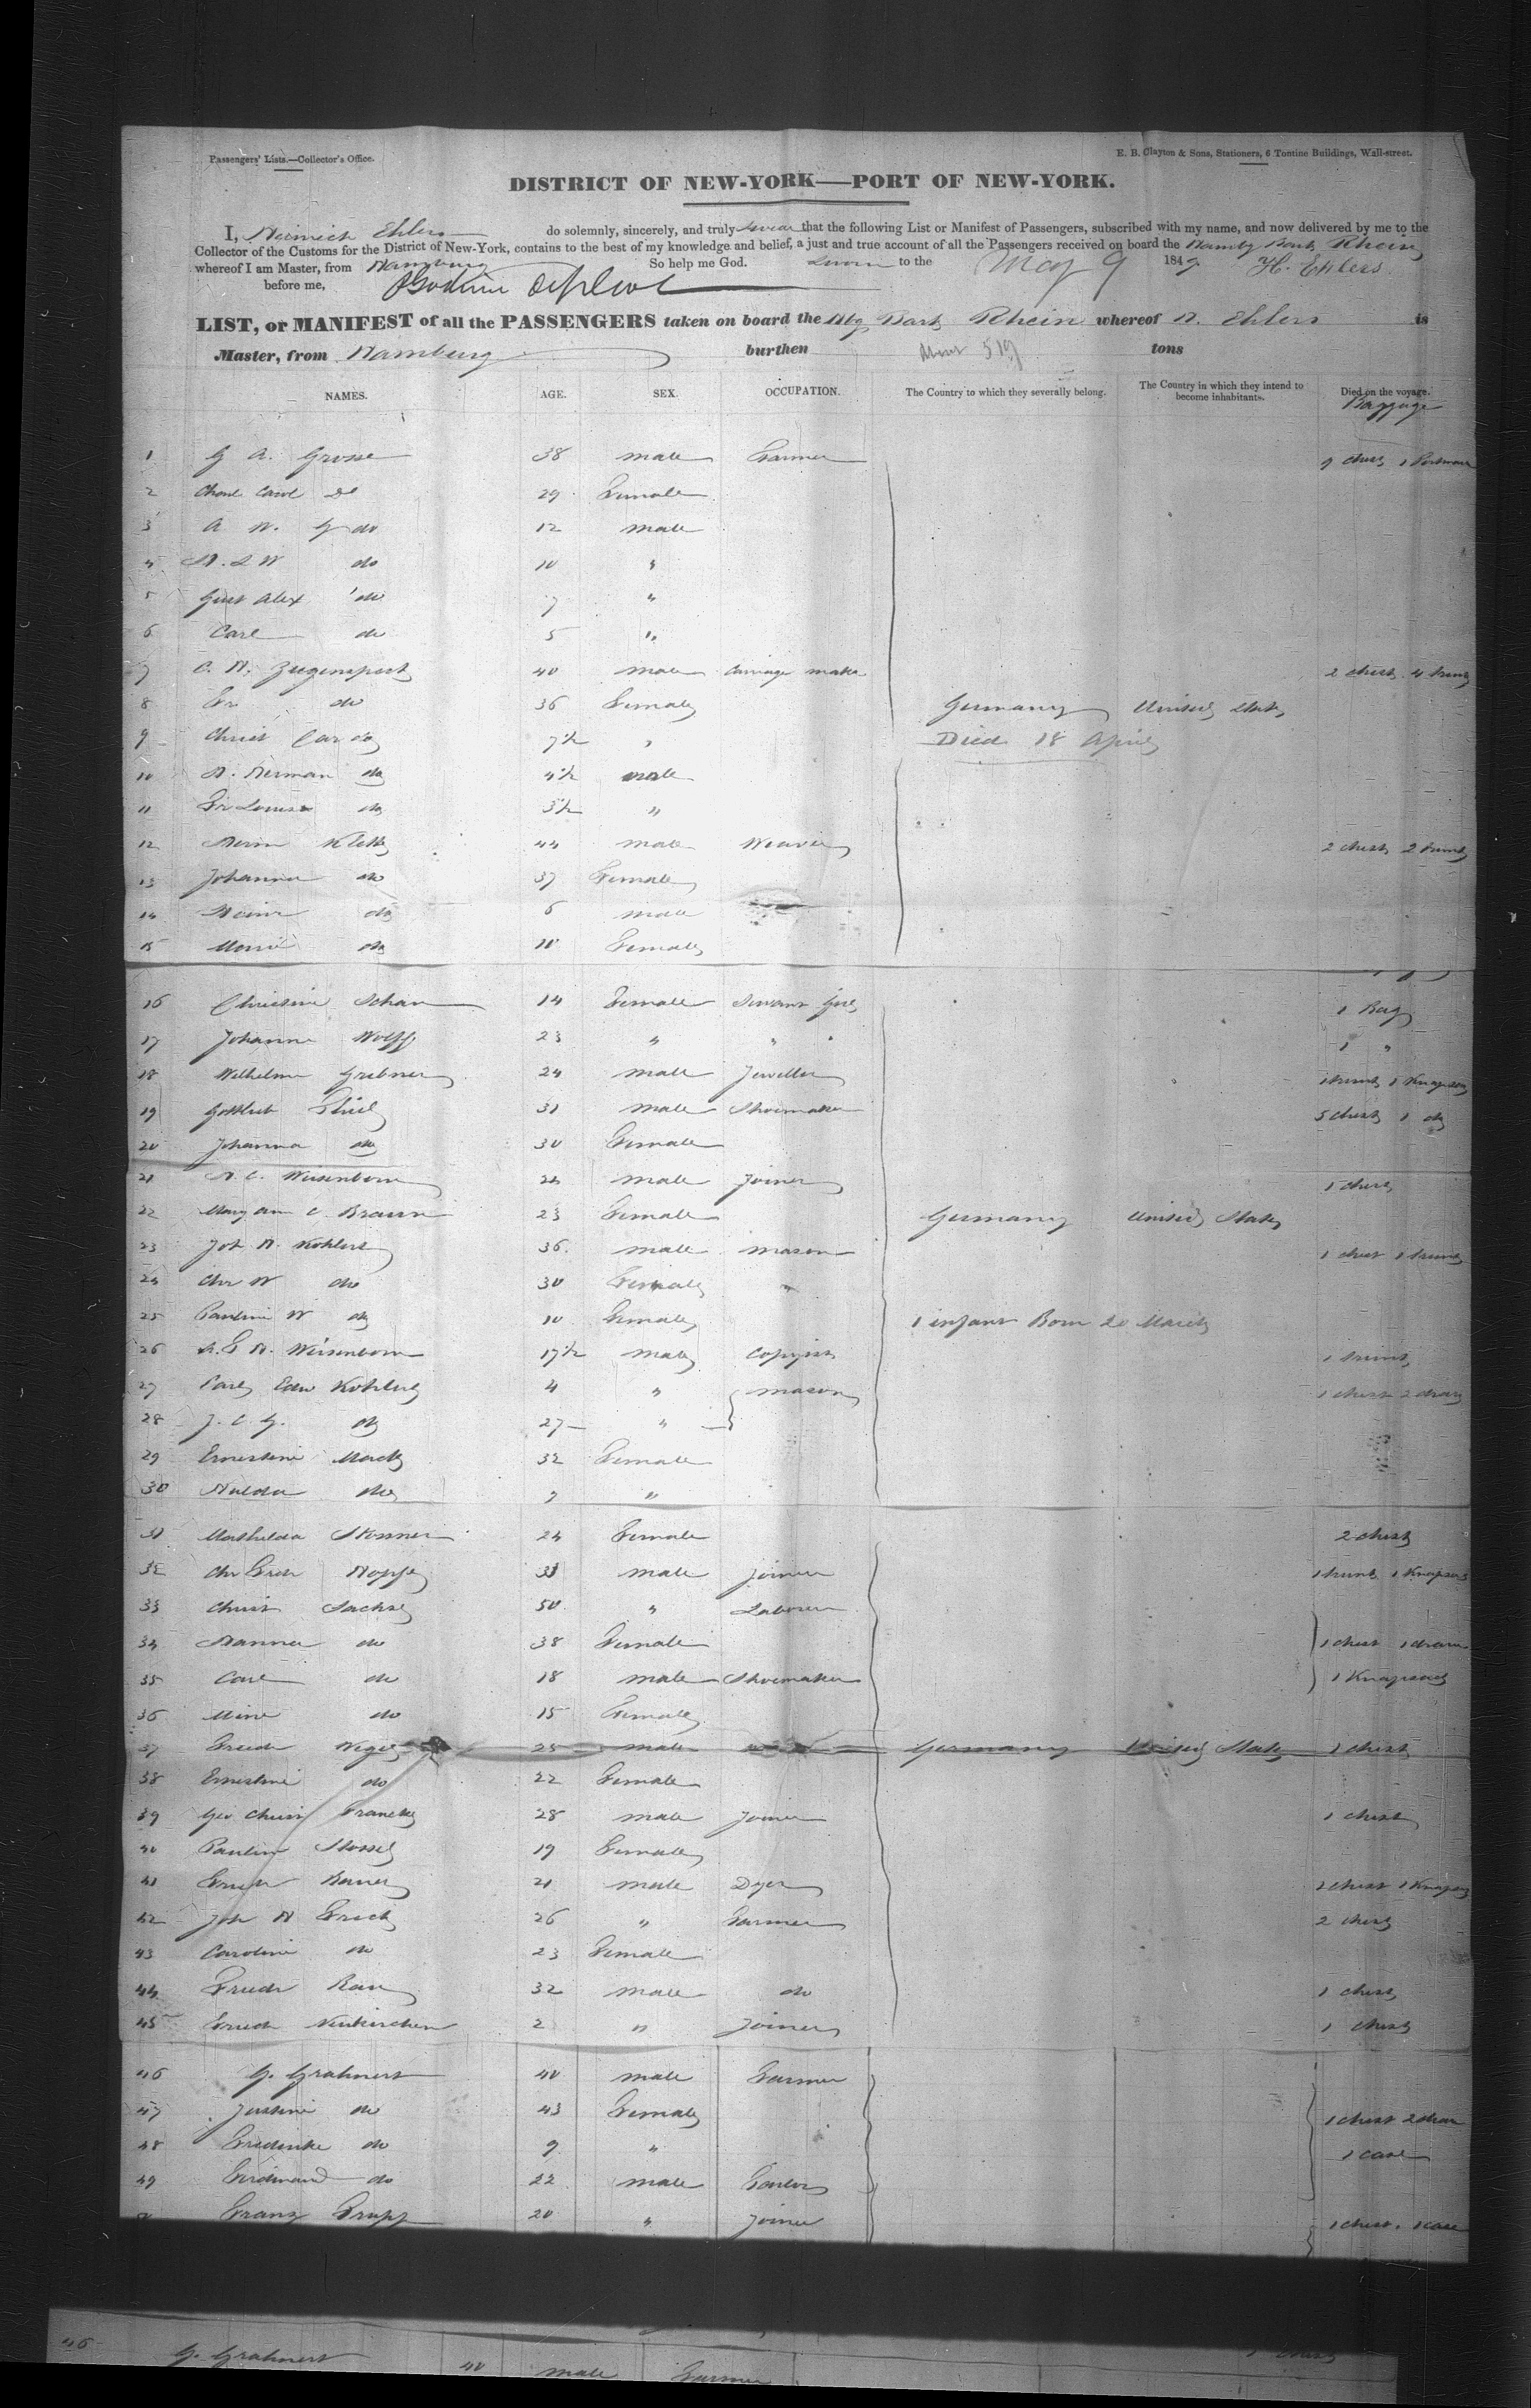 Passengers' Lists.—Collector's Office.
E. B. Clayton & Sons, Stationers, 6 Tontine Buildings, Wall-street.
DISTRICT OF NEW-YORK—PORT OF NEW-YORK.
I, Heinrich Ehlers do solemnly, sincerely, and truly swear that the following List or Manifest of Passengers, subscribed with my name, and now delivered by me to the
Collector of the Customs for the District of New-York, contains to the best of my knowledge and belief, a just and true account of all the Passengers received on board the Hamby Bark Rhein
whereof I am Master, from Hamburg So help me God. Sworn to the May 9 1849 H. Ehlers
before me,
LIST, or MANIFEST of all the PASSENGERS taken on board the Hbg Bark Rhein whereof H. Ehlers is
Master, from Hamburg burthen about 519 tons
NAMES. AGE. SEX. OCCUPATION. The Country to which they severally belong. The Country in which they intend to become inhabitants. Died on the voyage.
Baggage
1 G A. Grosse 38 male Farmer
2 Carol Do 29 Female
3 A W. G do 12 male
4 H. L W do 10 "
5 Gust Alex do 7 "
6 Carl do 5 "
7 C. H. 40 male Carriage maker 2 chests 4 trunks
8 Fr do 36 Female Germany United States
9 Christ Car do 7½ " Died 18 April
10 H. Herman do 4½ male
11 Fr Louise do 3½ "
12 Klett 44 male Weaver 2 chests 2 trunks
13 Johanna do 37 Female
14 Heinr do 6 male
15 do 10 Female
16 Christine Schan 14 Female Servant Girl 1 Bag
17 Johanna Wolff 23 " " 1 "
18 Wilhelm Grebner 24 male Jeweller 1 trunk 1 Knapsack
19 Gottlieb Thiel 31 male Shoemaker 5 chests 1 do
20 Johanna do 30 Female
21 H. C. Weisenborn 24 male Joiner 1 chest
22 Mary Ann C. Braun 23 Female Germany United States
23 Joh H. Kohlert 36 male mason 1 chest 1 trunk
24 Chr W do 30 Female "
25 Pauline W do 10 Female 1 infant Born 20 March
26 H. Weisenborn 17½ male Copyist 1 trunk
27 Carl Edw Kohlert 4 " mason 1 chest
28 J. C. G. do 27 "
29 Ernestine 32 Female
30 Hulda do 7 "
31 Mathilda 24 Female 2 chests
32 Chr Fried Hopfe 31 male Joiner 1 trunk 1 Knapsack
33 Christ Sachse 50 " Laborer
34 Hanna do 38 Female 1 chest
35 Carl do 18 male Shoemaker 1 Knapsack
36 Mine do 15 Female
37 Friedr 25 male Germany United States 1 chest
38 Ernestine do 22 Female
39 Geo Christ Francke 28 male Joiner 1 chest
40 Paulin 19 Female
41 Friedr 21 male Dyer 1 Knapsack
42 Joh H Frick 26 " Farmer 2 chests
43 Caroline do 23 Female
44 Friedr Rau 32 male do 1 chest
45 Friedr Neukirchen 2 " Joiner 1 chest
46 G. Grahnert 40 male Farmer
47 Justine do 43 Female 1 chest
48 Friederike do 9 " 1 case
49 Ferdinand do 22 male
Franz 20 " Joiner 1 chest. 1 case
46 G. Grahnert 40 male Farmer